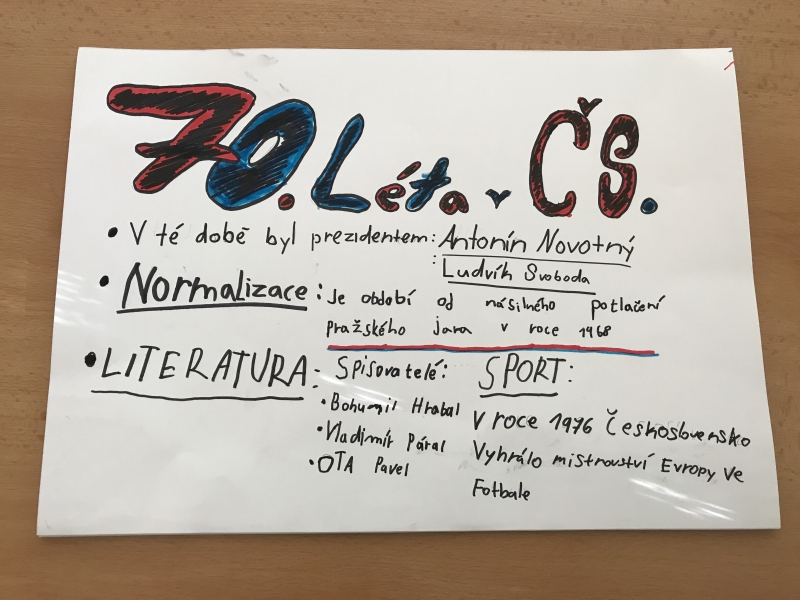 70. Léta v ČS.
• V té době byl prezidentem: Antonín Novotný
: Ludvík Svoboda
• Normalizace: Je období od násilného potlačení
pražského jara v roce 1968
• LITERATURA: Spisovatelé:
• Bohumil Hrabal
• Vladimír Páral
• OTA Pavel
SPORT:
V roce 1976 Československo
Vyhrálo mistrovství Evropy ve
Fotbale